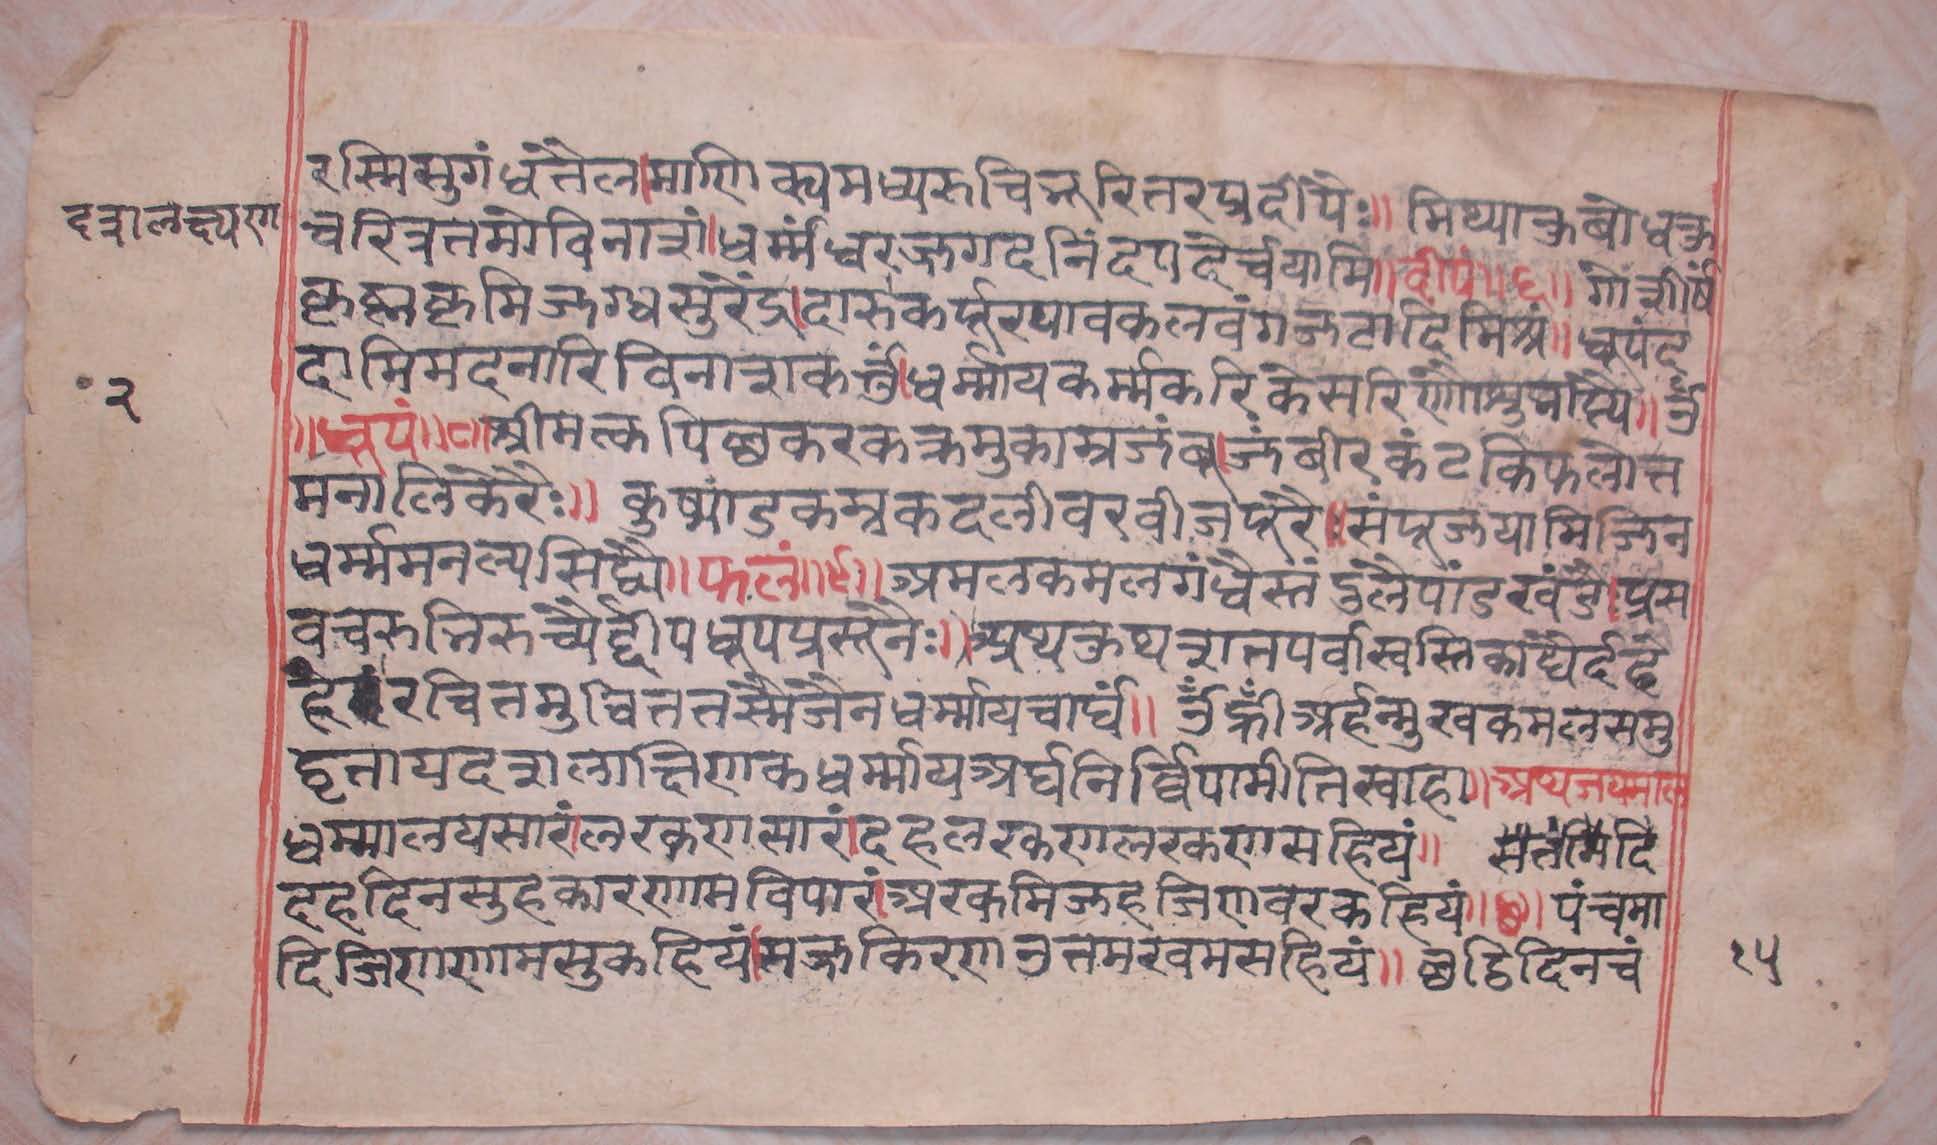 रस्मिसुगंधतैल।माणिक्यमध्यरुचिभूरितरप्रदीपैः॥ मिथ्याकुबोधकु
दशलक्ष्यण
चरित्रतमोविनाशं।धर्म्मंध्वरज्जगदनिंदपदेर्चयामि॥दीपं॥६॥ गोशीर्ष
कृष्णकृमिजग्धसुरेंद्र।दारुकर्प्पूरयावकलवंगजटादिमिश्रं॥ धूपंद
दामिमदनारिविनाशकर्त्तुं।धर्म्मायकर्म्मकरिकेसरिणे
२
॥धूपं॥७॥श्रीमत्कपिछकरकक्रमुकाम्रजंबू।जंबीरकंटकिफलोत्त
मनालिकेरैः॥ कुष्मांडकम्रकदलीवरवीजपूरैः॥संपूजयामिजिन
धर्म्ममनल्पसिद्ध्यै॥फलं॥८॥अमलकमलगंधैस्तंडुलैपांडखंडै।प्रस
वचरुभिरुच्यैर्द्दीपधूपप्रसूनैः॥प्रथकुथशतपर्वास्वस्तिकाद्यैर्ददे
रचितमुचिततस्मैजैनधर्म्मायचार्घं॥ ॐह्रीं अर्हन्मुखकमलसमु
द्दृतायदशलाक्षिणकधर्म्मायअर्घनिर्व्विपामीतिस्वाहा॥अथजयमाल
धम्मालयसारं।लरकणसारं।दहलरकणलरकणसहियं॥
दहदिनसुहकारणमविपारं।अरकमिजहजिणवरकहियं॥१॥ पंचमा
दिजिणणामसुकहियं।मज्जकिरणउत्तमखमसहियं॥ छट्ठिदिनचं
१५